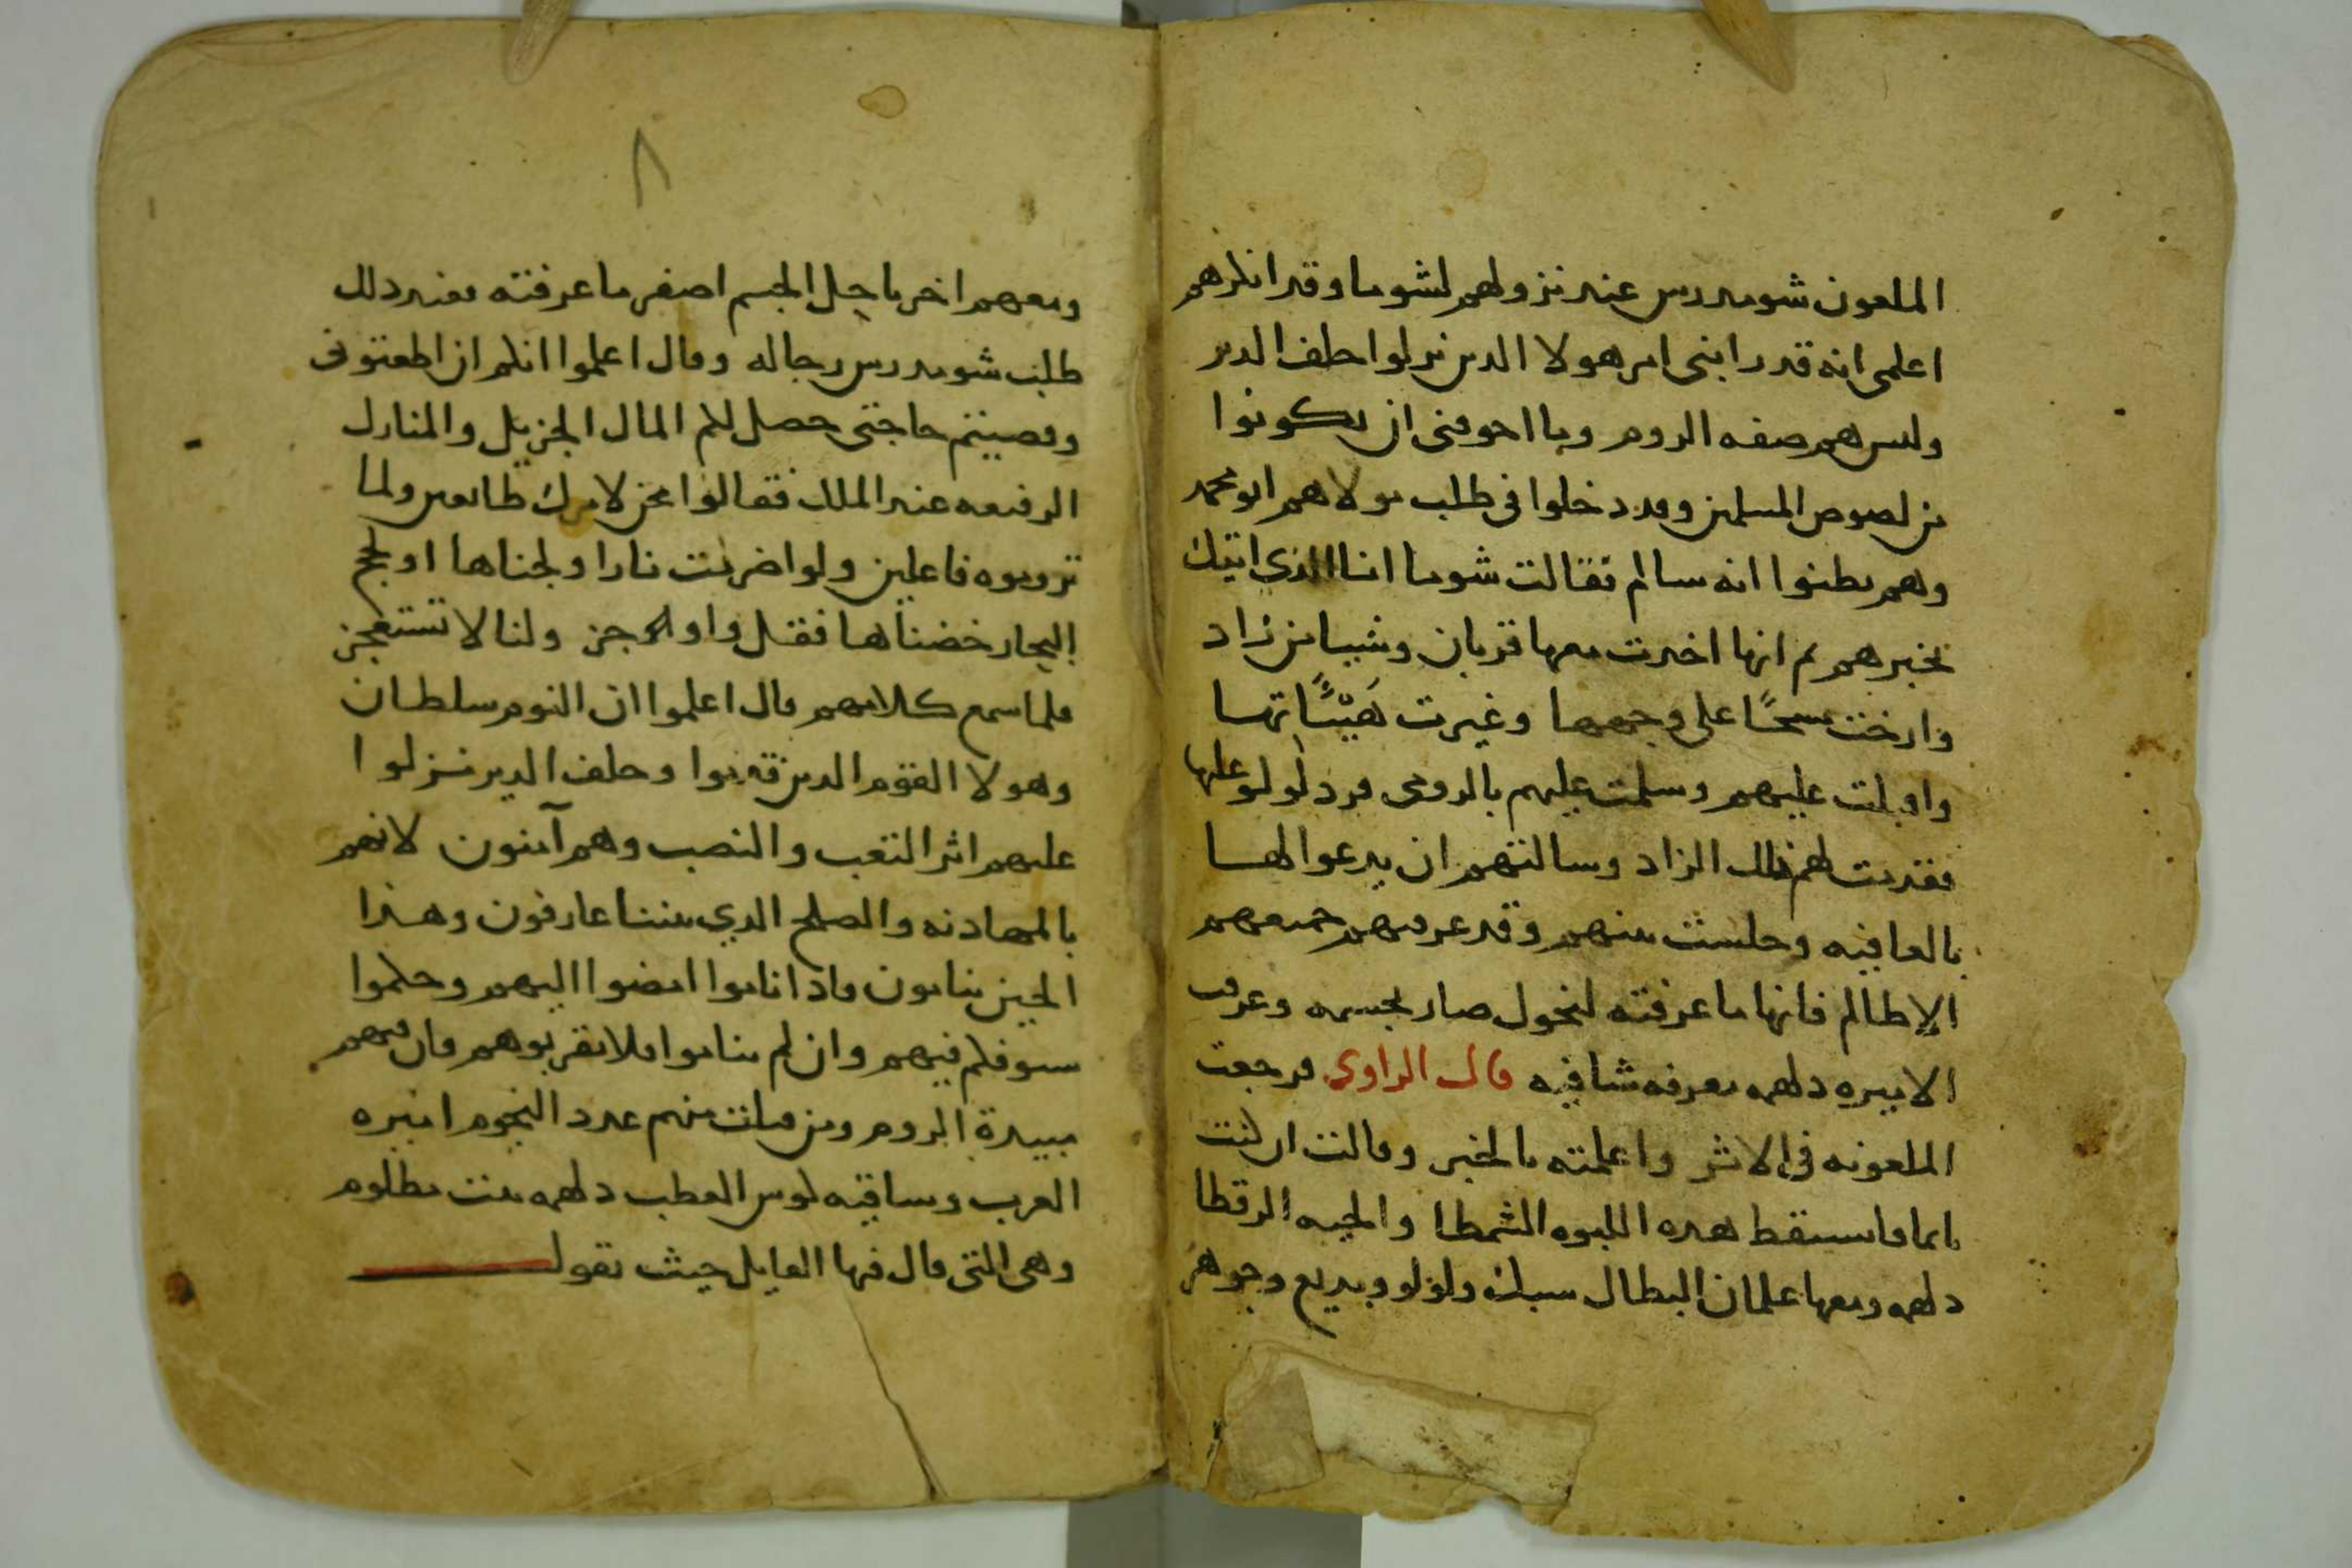 الملعون شومدرس عند نزولهم لشوما وقد انكرهم
اعلمى انه قد رابنى امر هولا الدين نزلوا خلف الدير
وليس هم صفه الروم وما اخوفنى ان يكونوا
من لصوص المسلمين وقد دخلوا فى طلب مولاهم ابو محمد
وهم يظنوا انه سالم فقالت شوما انا الذي اتيك
بخبرهم ثم انها اخدت معها قربان وشيا من زاد
وارخت مسحًا على وجهها وغيرت هيئاتها
واقبلت عليهم وسلمت عليهم بالرومى فرد لولو عليها
فقدمت لهم ذلك الزاد وسالتهم ان يدعوا لها
بالعافيه وجلست بينهم وقد عرفتهم جميعهم
الا ظالم فانها ما عرفته لنحول صار بجسمه وعرفت
الاميره دلهمه معرفه شافيه قال الراوى فرجعت
الملعونه فى الاثر واعلمته بالخبر وقالت ان كنت
نايما فاستيقظ هده اللبوه الشمطا والحيه الرقطا
دلهمه ومعها غلمان البطال سبك ولولو وبديع وجوهر
٨
ومعهم اخر ناحل الجسم اصفر ما عرفته فعند دلك
طلب شومدرس رجاله وقال اعلموا انكم ان اطعتونى
وقضيتم حاجتى حصل لكم المال الجزيل والمنازل
الرفيعه عند الملك فقالوا نحن لامرك طايعين ولما
تروموه فاعلين ولو اضرمت نارا ولجناها او لجج
البحار خضناها فقل واوجز ولنا لا تستعجز
فلما سمع كلامهم قال اعلموا ان النوم سلطان
وهولا القوم الدين قدموا وخلف الدير نزلوا
عليهم اثر التعب والنصب وهم آمنون لانهم
بالمهادنه والصلح الدي بيننا عارفون وهذا
الحين ينامون فاذا ناموا امضوا اليهم وحكموا
سيوفكم فيهم وان لم يناموا فلا تقربوهم فان فيهم
مبيدة الروم ومن قتلت منهم عدد النجوم اميره
العرب وساقيه كوس العطب دلهمه بنت مظلوم
وهى التى قال فيها القايل حيث يقول